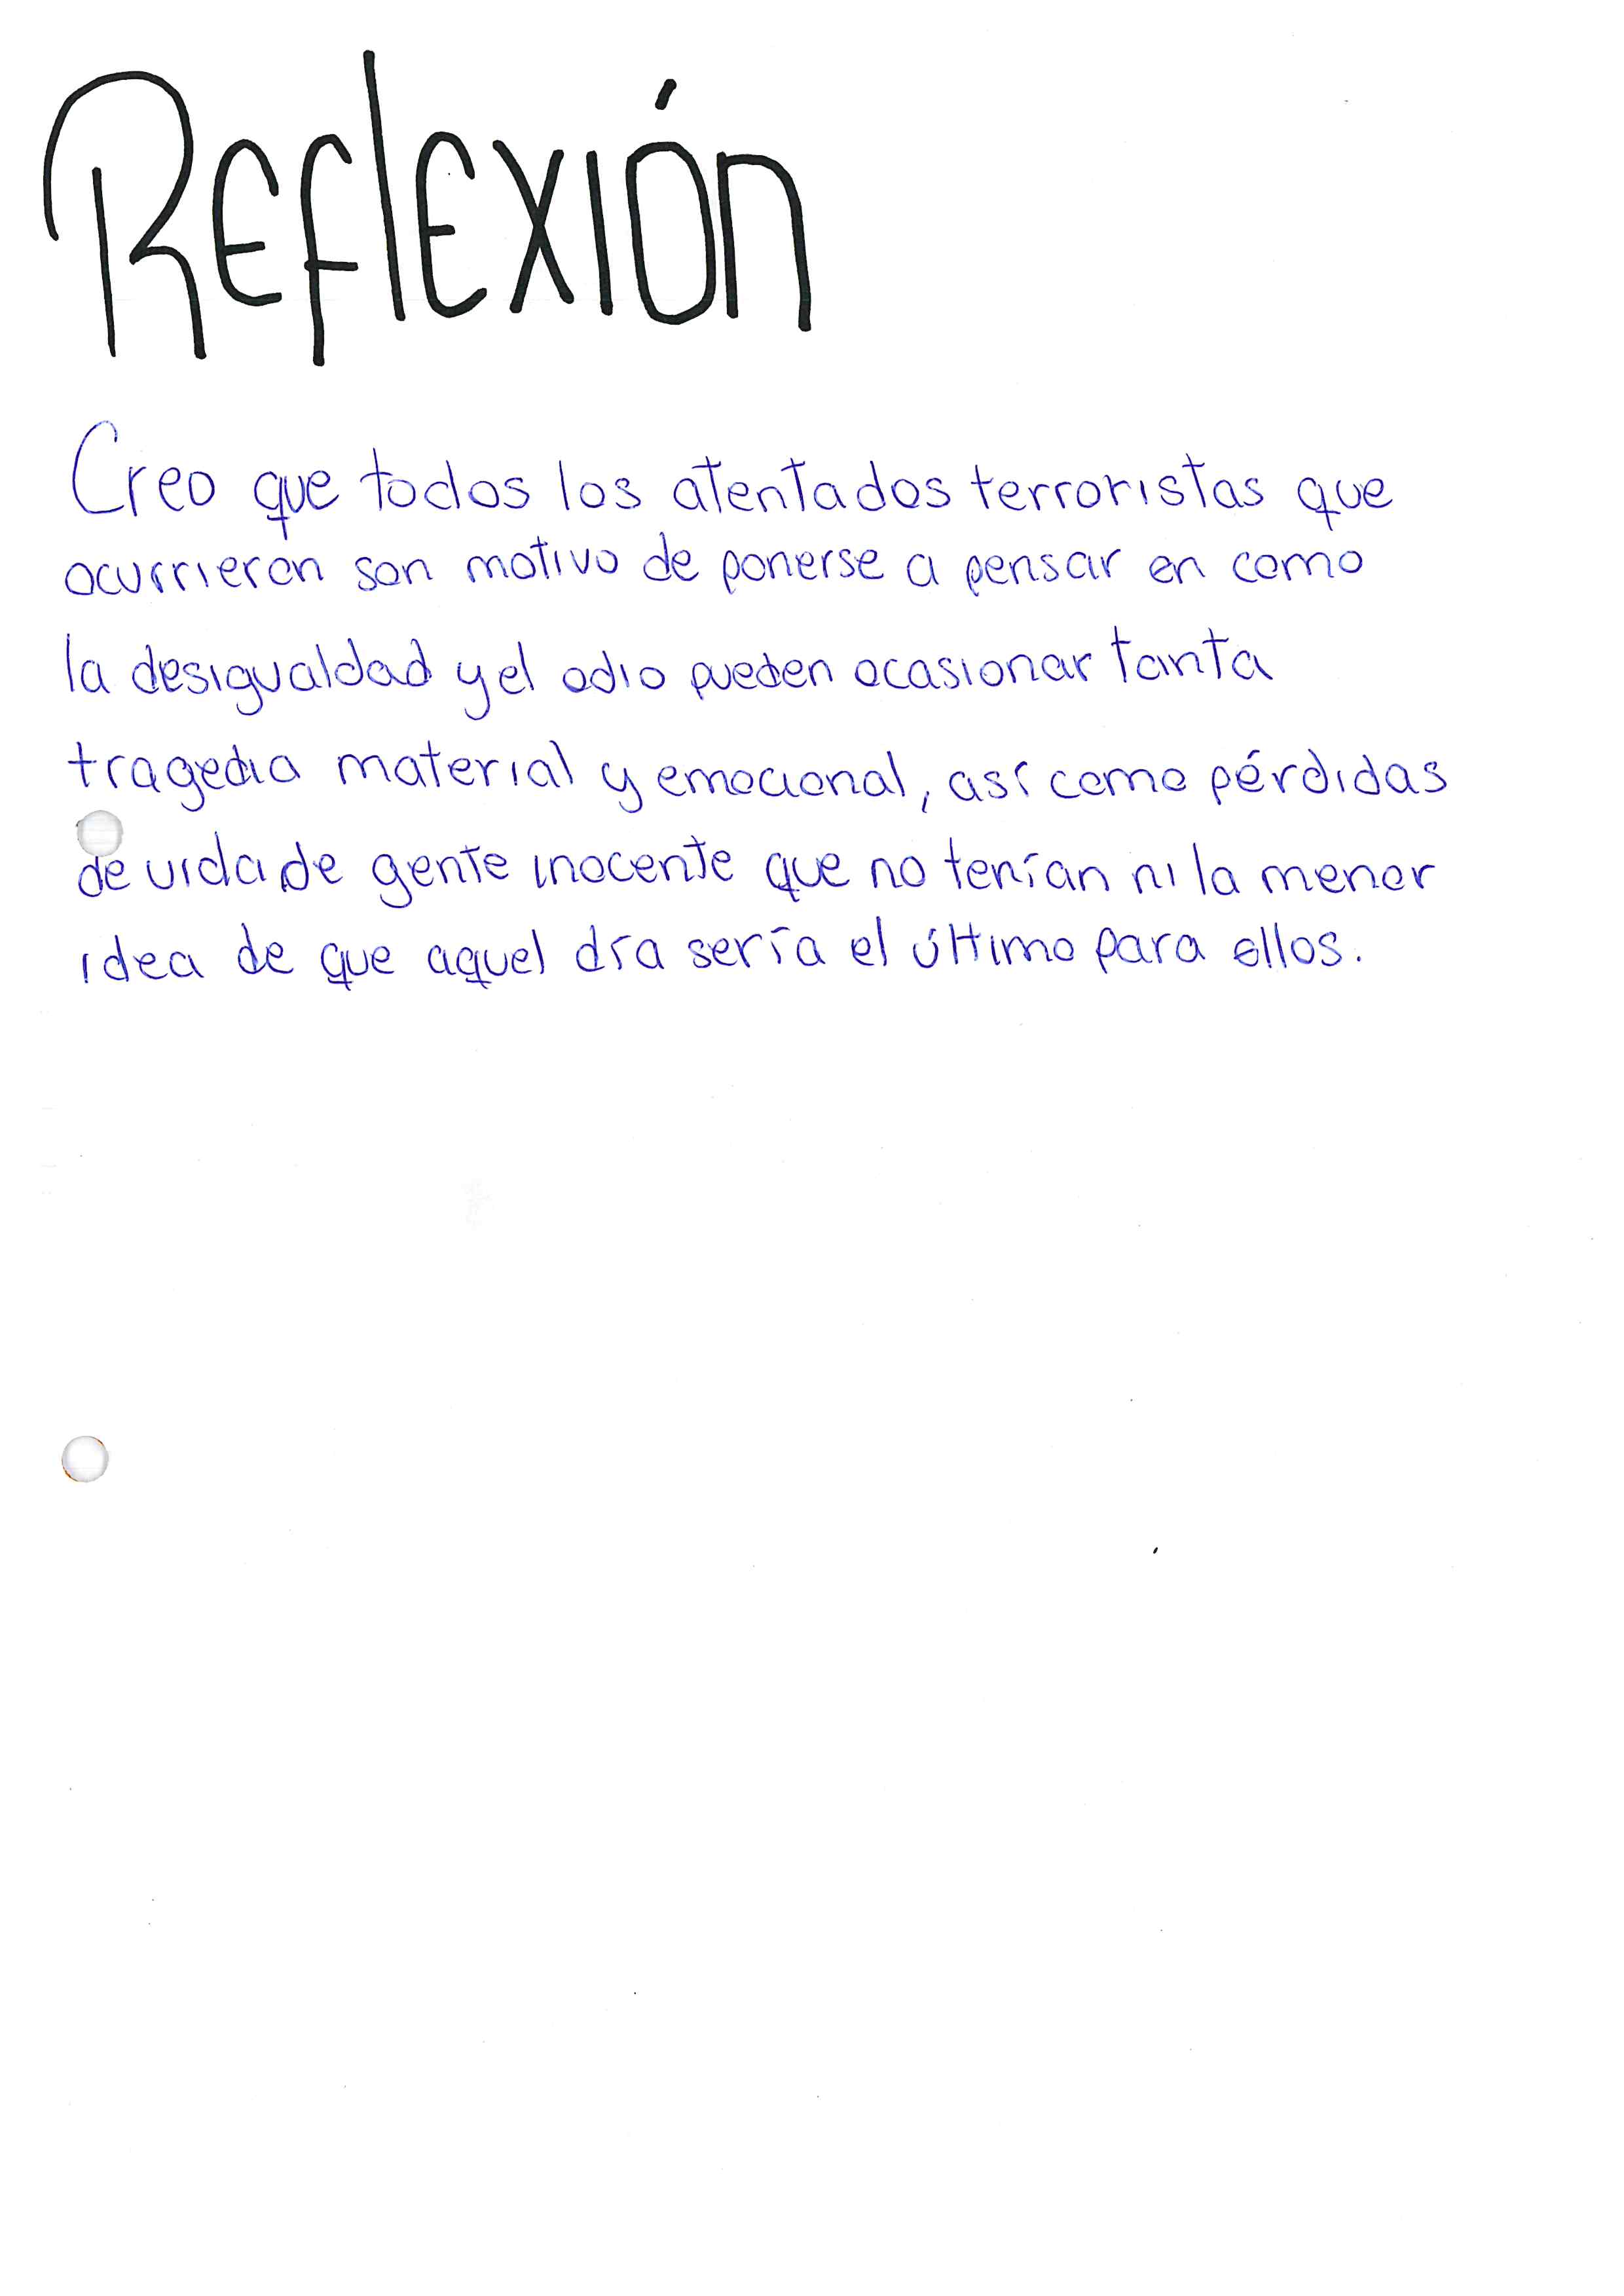 REFlEXIÓn
Creo que todos los atentados terroristas que
ocurrieron son motivo de ponerse a pensar en como
la desigualdad y el odio pueden ocasionar tanta
tragedia material y emocional, así como pérdidas
de vida de gente inocente que no tenían ni la menor
idea de que aquel día sería el último para ellos.